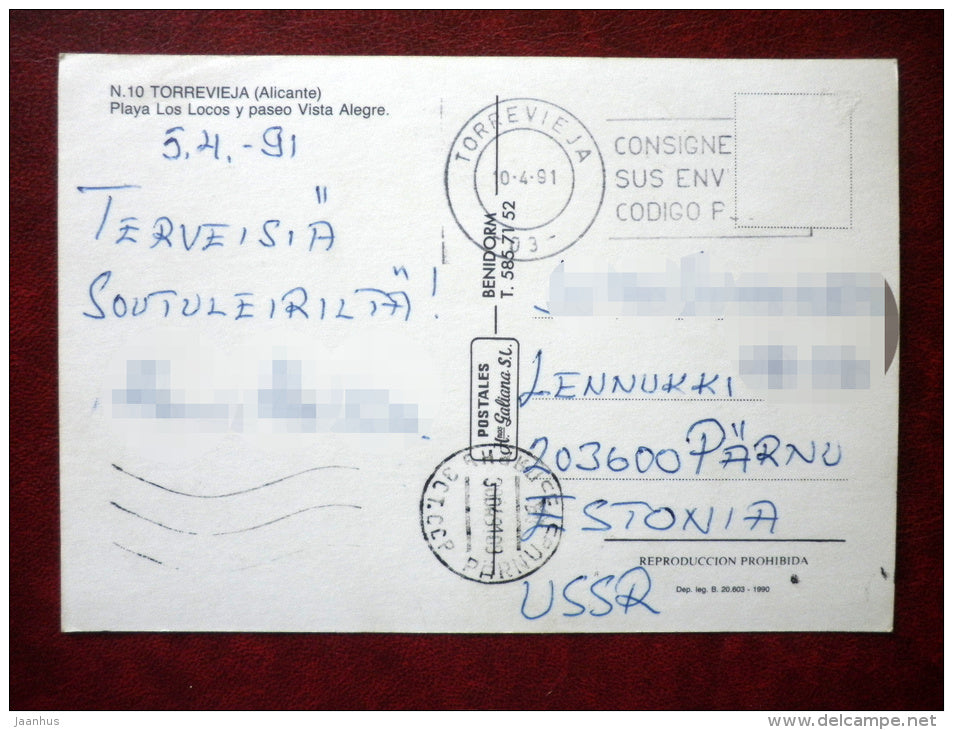 N.10 TORREVIEJA (Alicante)
Playa Los Locos y paseo Vista Alegre.
5.4.-91
TERVEISIÄ
SOUTULEIRILTÄ!
TORREVIEJA
10-4-91
03-
CONSIGNE
SUS ENV
CODIGO P
BENIDORM
T. 585 71 52
POSTALES
Hnos Galiana S.L.
LENNUKKI
203600 PÄRNU
ESTONIA
USSR
PÄRNU
REPRODUCCION PROHIBIDA
Dep. leg. B. 20.603 - 1990
Jaanhus
www.delcampe.net